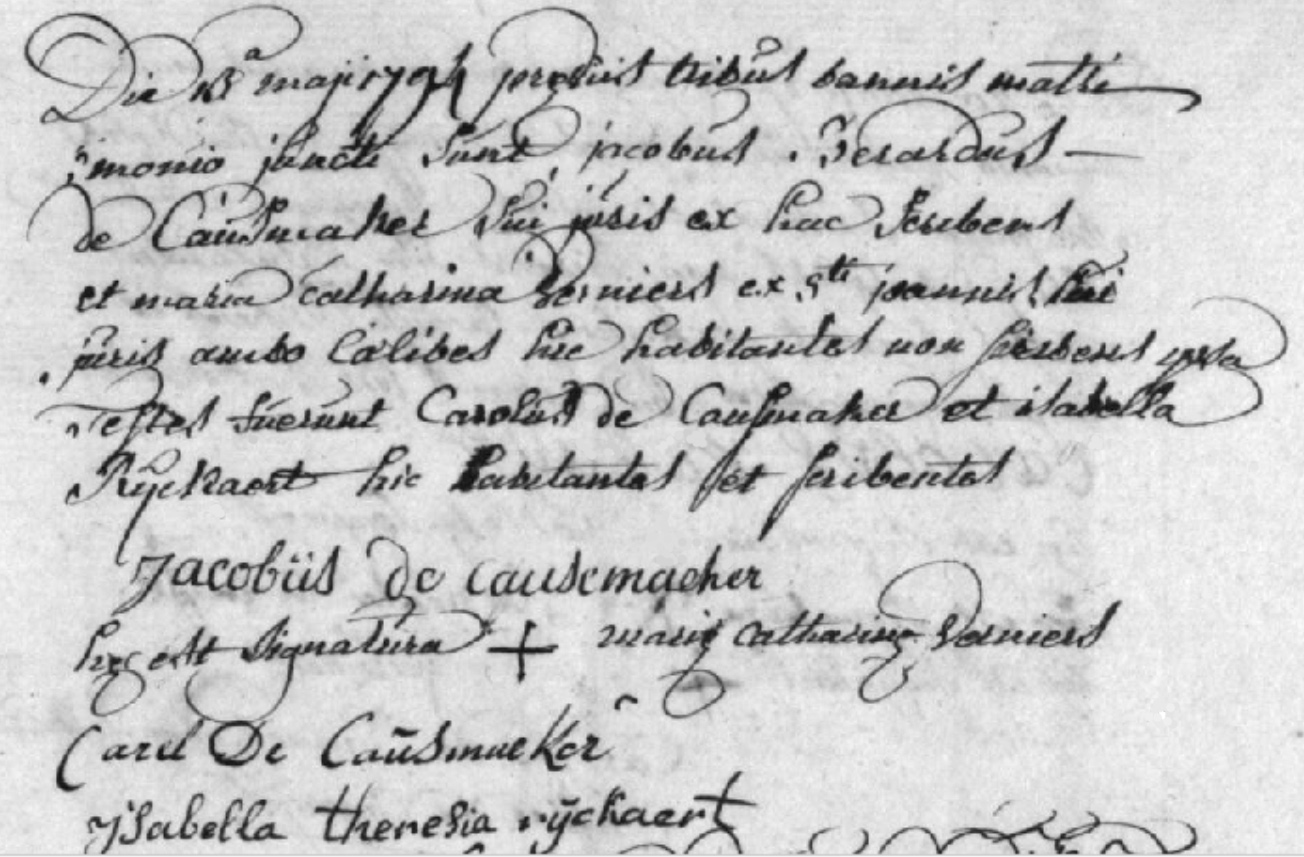 Die 13a maji 1794 prævius tribus bannis matri
monio juncti sunt jacobus Berardus —
de Causmaker sui juris ex hac scribens
et maria Catharina Verniers ex sti joannis sui
juris ambo Cælibes hic habitantes non scribens ipsa
Testes fuerunt Carolus de Causmaker et isabella
Ryckaert hic habitantes et scribentes
Jacobüs de causemaeker
hæc est signatura + mariæ catharinæ Verniers
Carel De Causmaeker
ysabella theresia rÿckaert